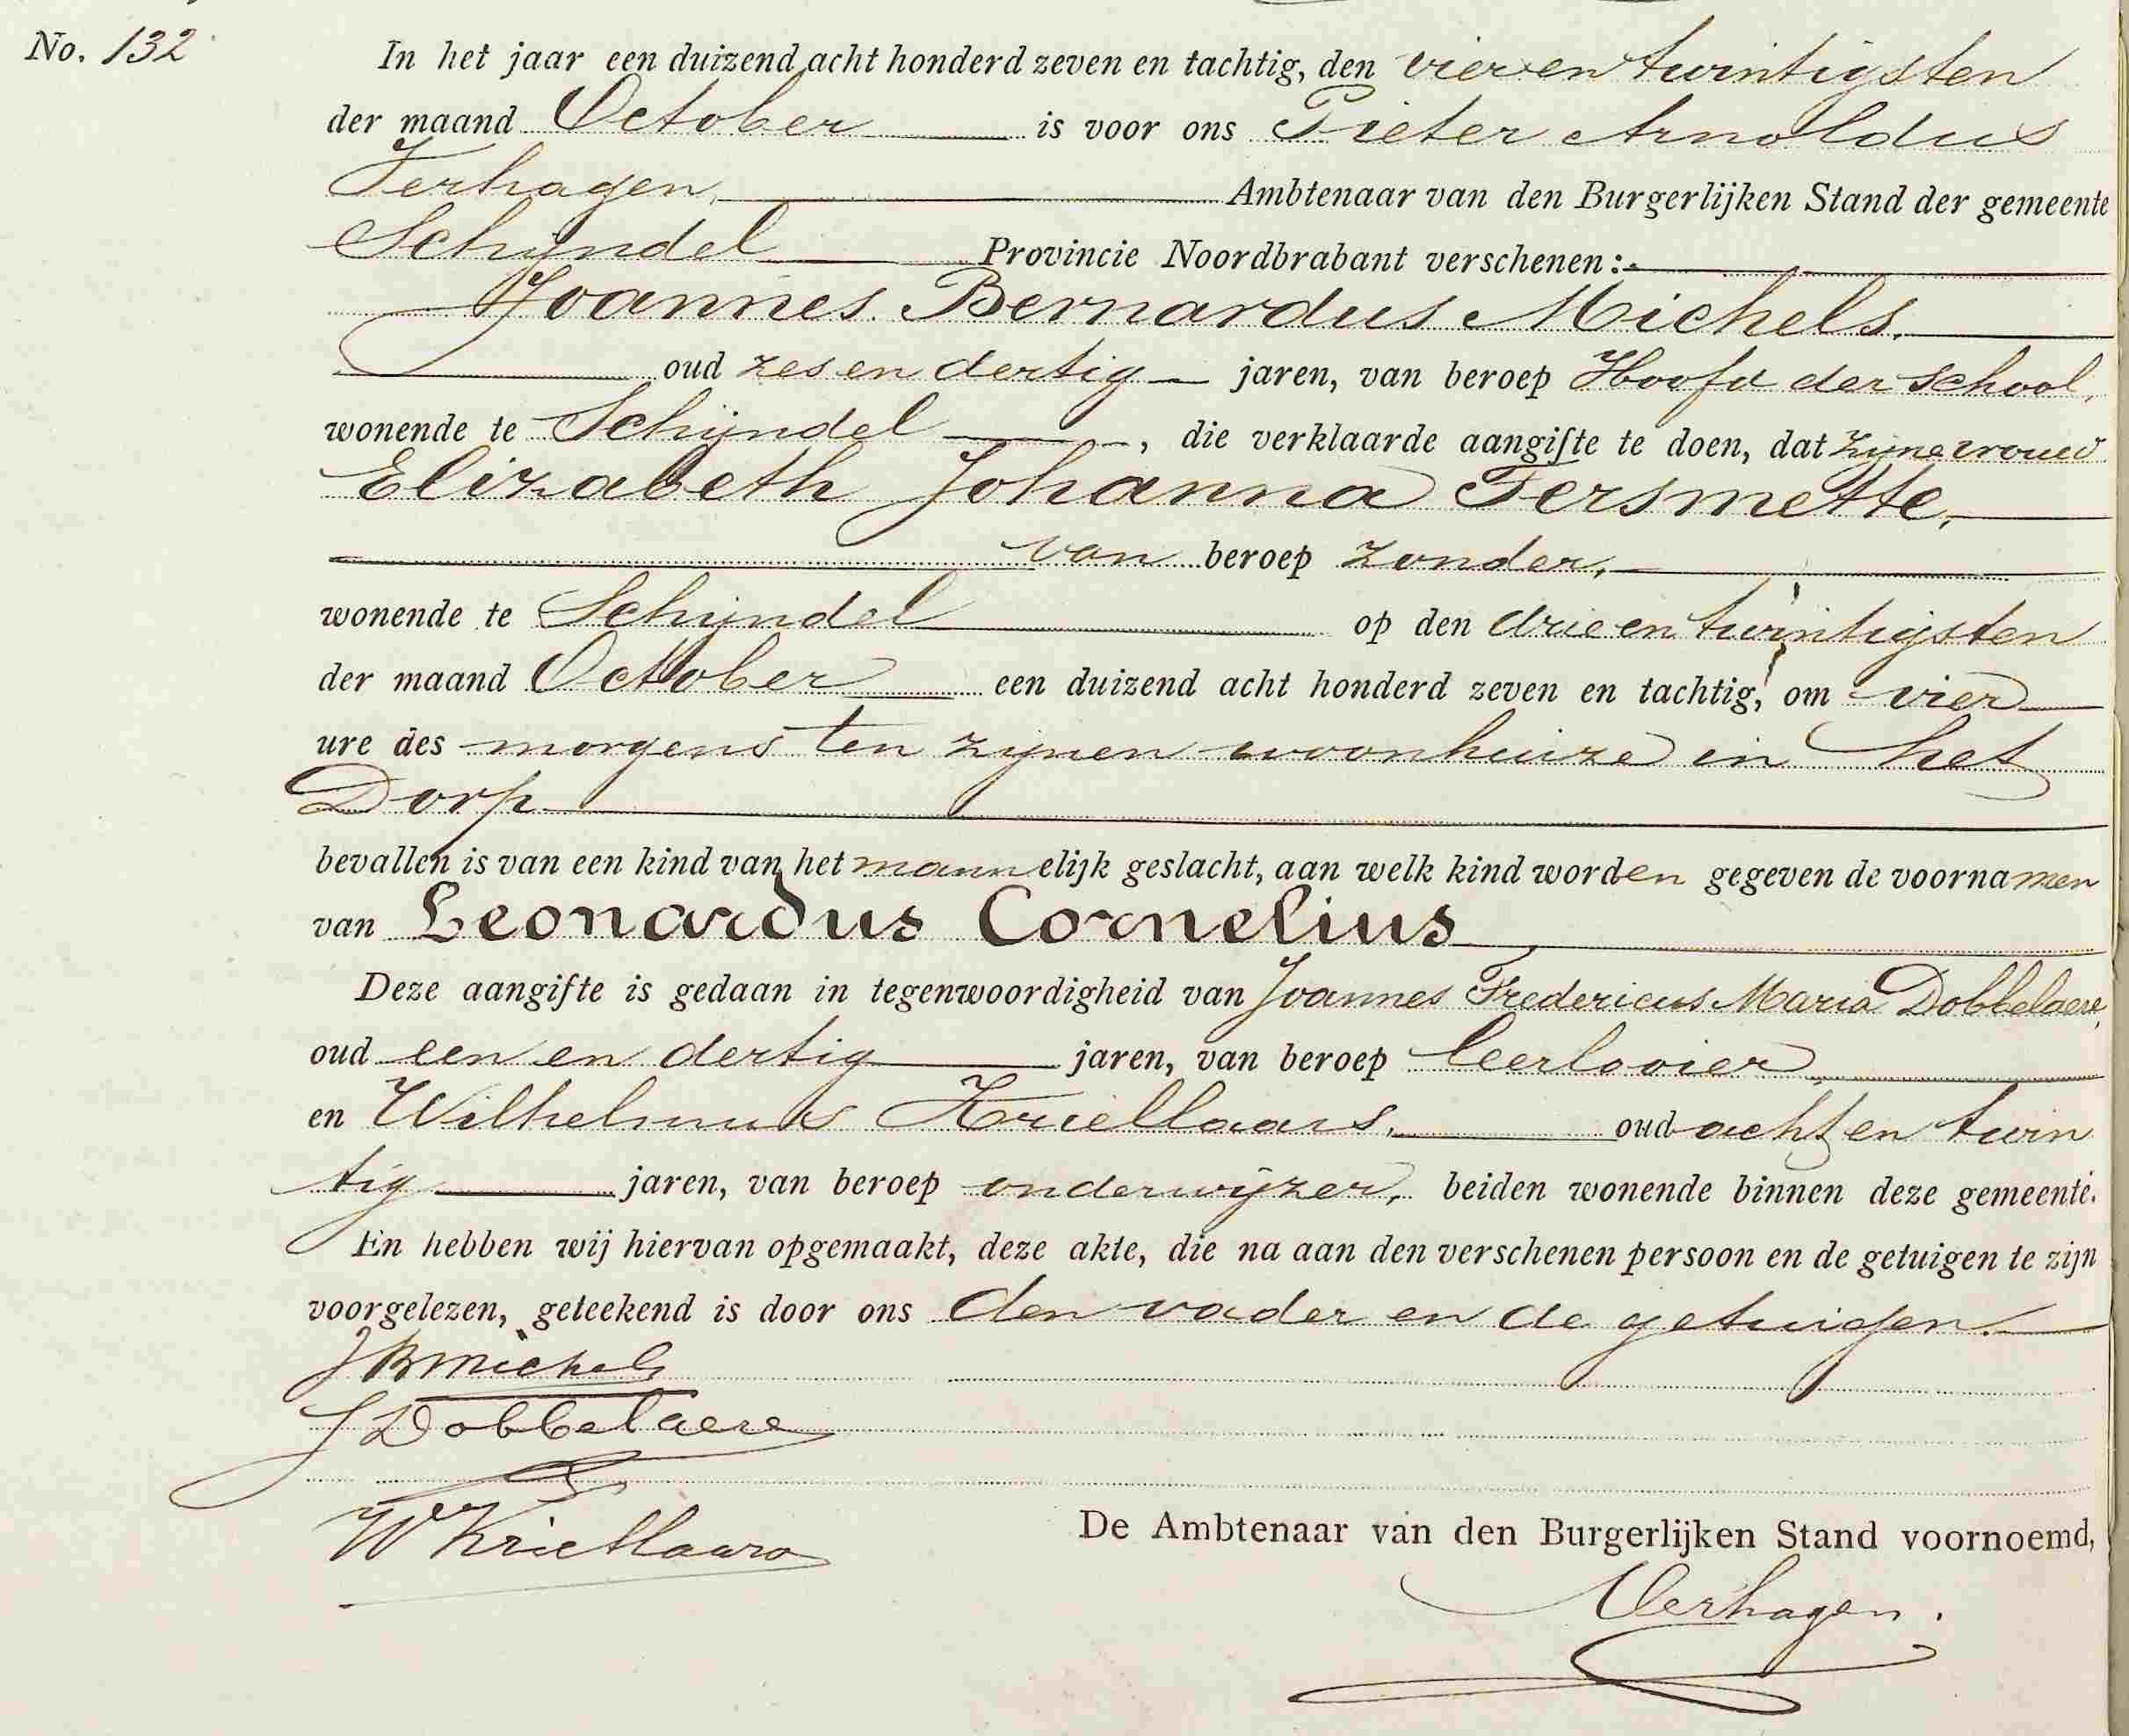 No. 132
In het jaar een duizend acht honderd zeven en tachtig, den vier en twintigsten
der maand October is voor ons Pieter Arnoldus
Verhagen, Ambtenaar van den Burgerlijken Stand der gemeente
Schijndel Provincie Noordbrabant verschenen:
Joannes Bernardus Michels,
oud zes en dertig jaren, van beroep Hoofd der school,
wonende te Schijndel, die verklaarde aangifte te doen, dat zijne vrouw
Elizabeth Johanna Tersmette,
van beroep zonder,
wonende te Schijndel op den drie en twintigsten
der maand October een duizend acht honderd zeven en tachtig, om vier
ure des morgens ten zijnen woonhuize in het
Dorp
bevallen is van een kind van het mannelijk geslacht, aan welk kind worden gegeven de voornamen
van Leonardus Cornelius
Deze aangifte is gedaan in tegenwoordigheid van Joannes Fredericus Maria Dobbelaere,
oud een en dertig jaren, van beroep leerlooier,
en Wilhelmus Kriellaars, oud acht en twin
tig jaren, van beroep onderwijzer, beiden wonende binnen deze gemeente.
En hebben wij hiervan opgemaakt, deze akte, die na aan den verschenen persoon en de getuigen te zijn
voorgelezen, geteekend is door ons den vader en de getuigen.
JB Michels
J Dobbelaere
W Kriellaars
De Ambtenaar van den Burgerlijken Stand voornoemd,
Verhagen.